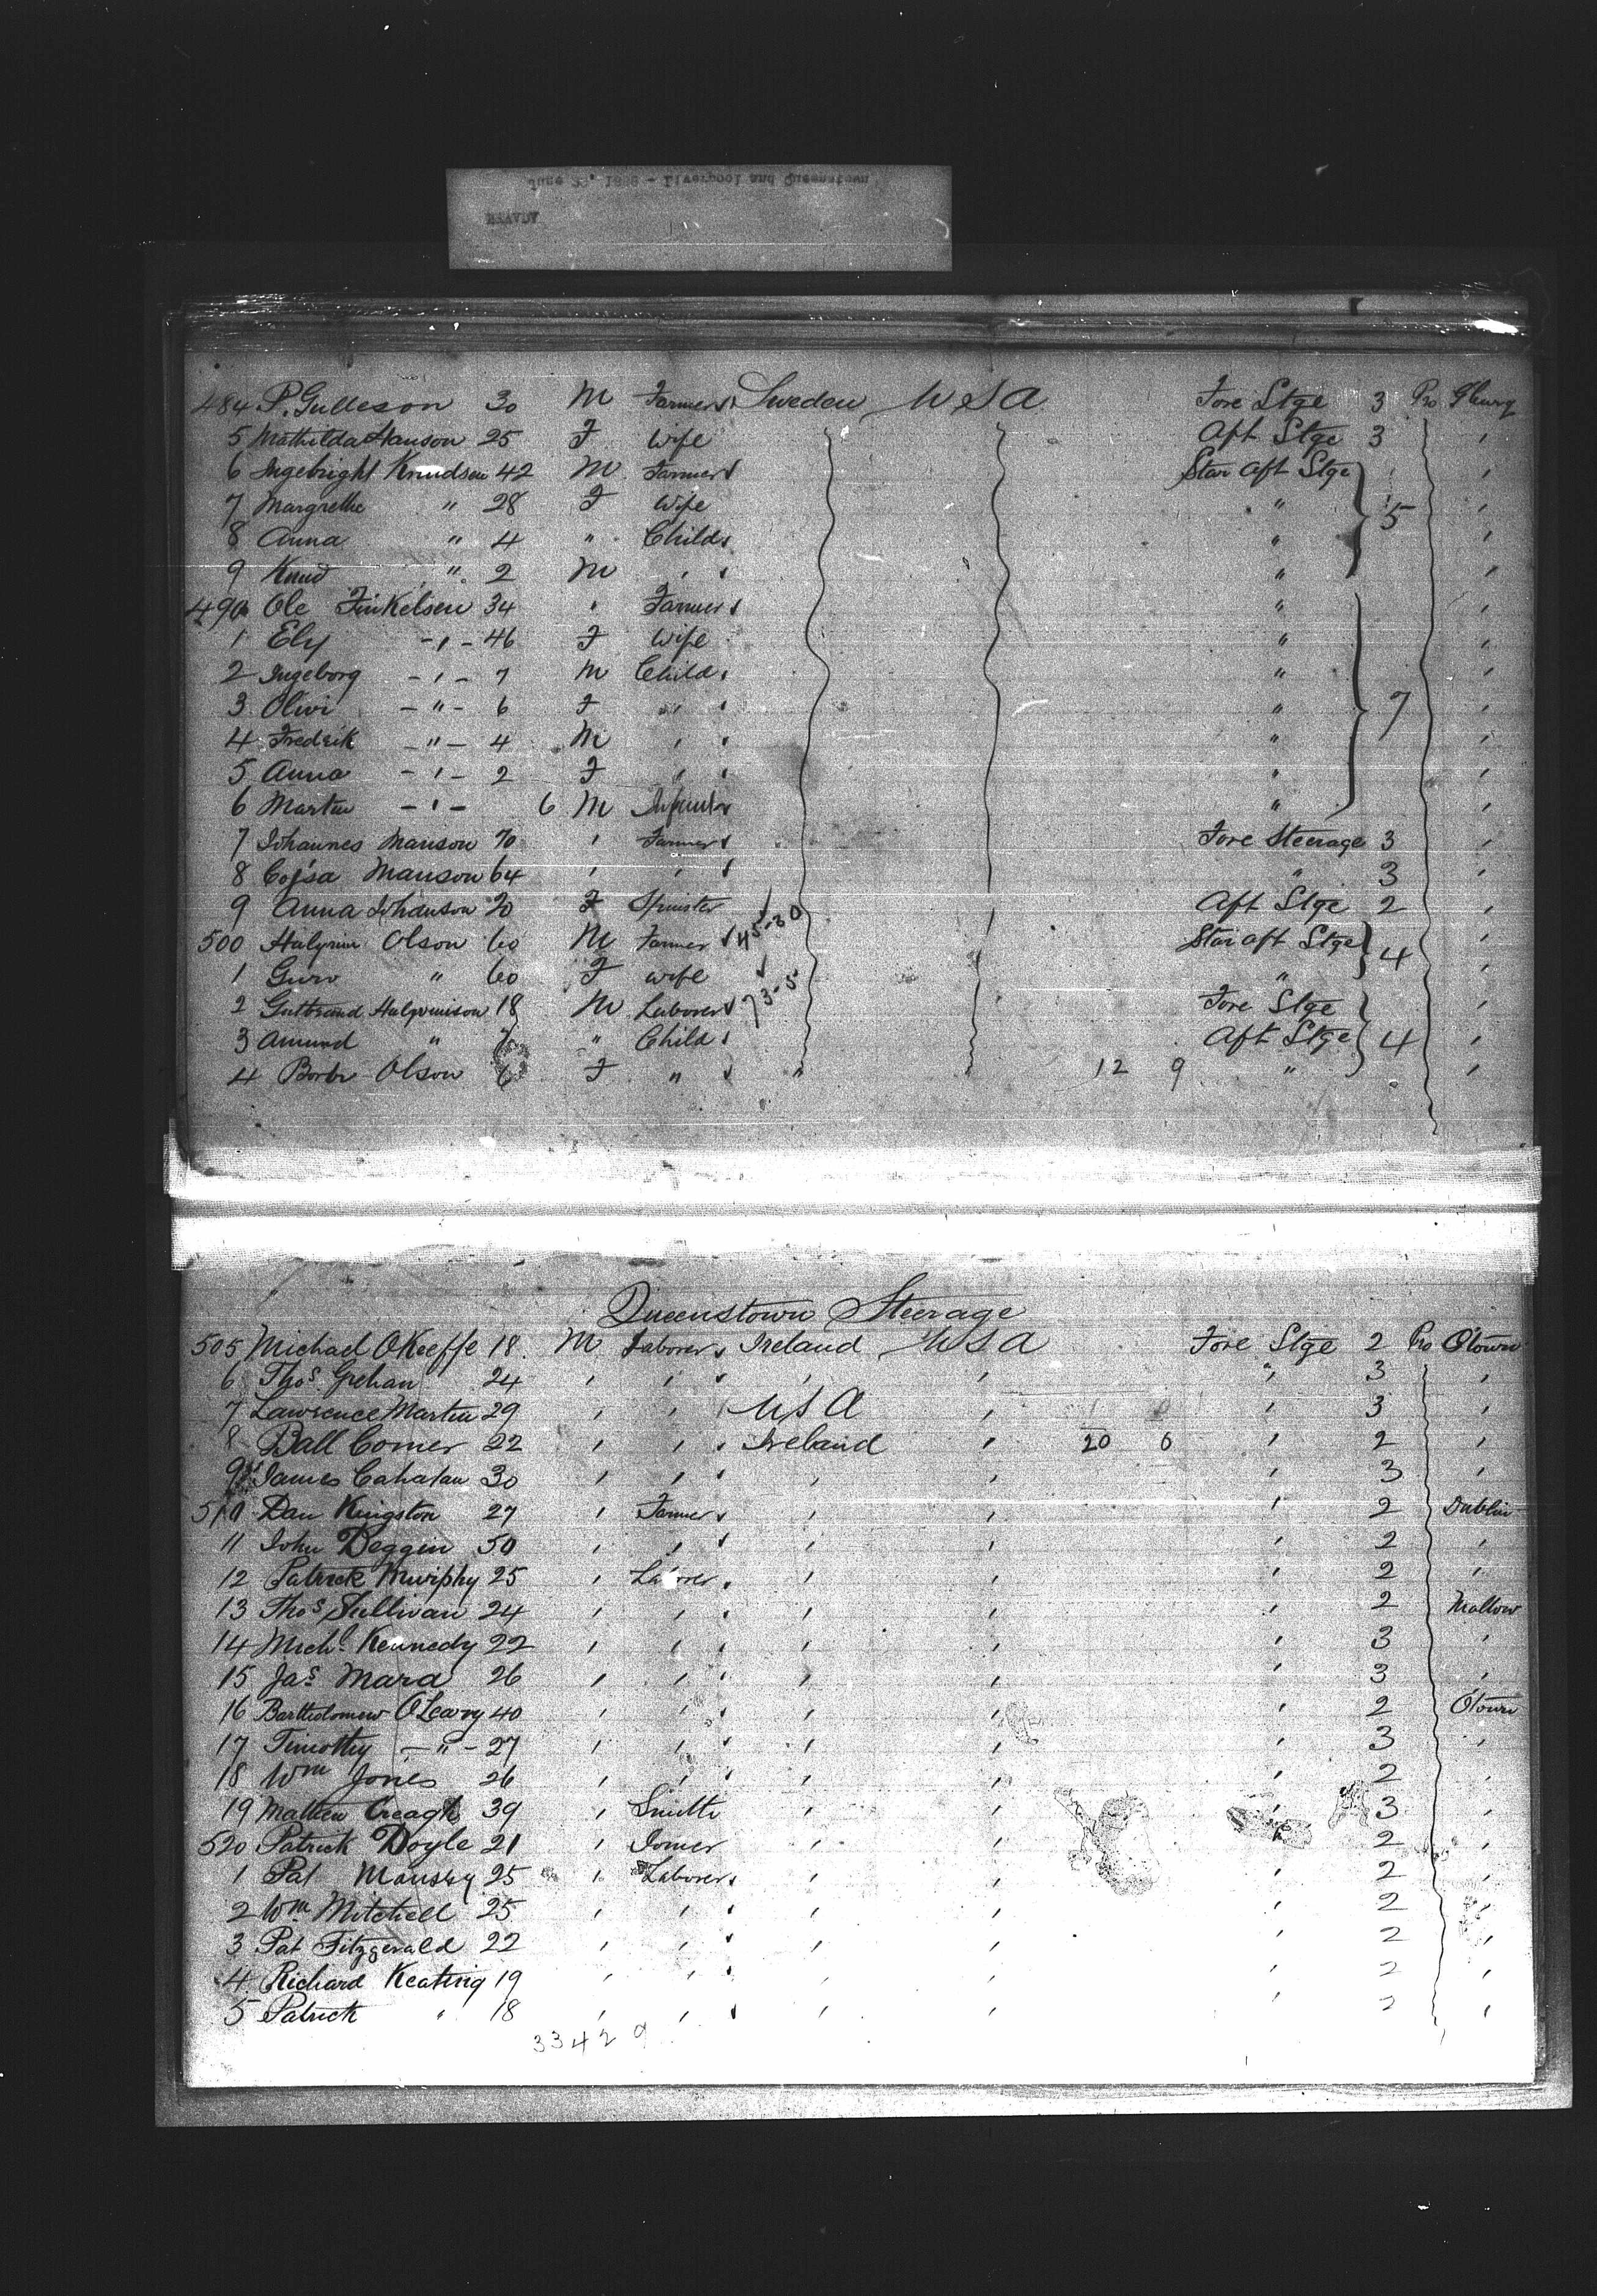 June 23, 1886 - Liverpool and Queenstown
484 P. Gulleson 30 M Farmer Sweden USA Fore Stge 3 Pro G'burg
5 Mathilda Hanson 25 F Wife Aft Stge 3 '
6 Ingebright Knudsen 42 M Farmer Star Aft Stge '
7 Margrethe " 28 F Wife " 5 '
8 Anna " 4 " Child " '
9 Knud " 2 M ' " '
490 Ole Finkelsen 34 ' Farmer " '
1 Ely -'- 46 F Wife " '
2 Ingeborg -'- 7 M Child " '
3 Olivi -"- 6 F " " 7 '
4 Fredrik -"- 4 M ' " '
5 Anna -'- 2 F " " '
6 Martin -'- 6 M Infant " '
7 Johannes Manson 70 ' Farmer Fore Steerage 3 '
8 Cajsa Manson 64 ' ' " 3
9 Anna Johanson 20 F Spinster Aft Stge 2 '
500 Halgrim Olson 60 M Farmer 45-30 Star aft Stge 4 '
1 Guro " 60 F Wife " '
2 Gulbrand 18 M Laborer 73-5 Fore Stge '
3 Amund " 7 " Child Aft Stge 4 '
4 Olson 6 F " " 12 9 " '
Queenstown Steerage
505 Michael OKeeffe 18 M Laborer Ireland USA Fore Stge 2 Pro Q'town
6 Thos Grehan 24 ' ' ' ' " 3 '
7 Lawrence Martin 29 ' ' USA ' ' 3 '
8 Ball Comer 22 ' ' Ireland ' 20 6 ' 2 '
9 James Cahalan 30 ' ' ' ' ' 3 '
510 Dan Kingston 27 ' Farmer ' ' ' 2 Dublin
11 John Deggin 50 ' ' ' ' ' 2 '
12 Patrick Murphy 25 ' Laborer ' ' ' 2 '
13 Thos Sullivan 24 ' ' ' ' ' 2 Mallow
14 Michl Kennedy 22 ' ' ' ' ' 3 '
15 Jas Mara 26 ' ' ' ' ' 3 '
16 Bartholomew OLeary 40 ' ' ' ' ' 2 Q'town
17 Timothy -"- 27 ' ' ' ' ' 3 '
18 Wm Jones 26 ' ' ' ' ' 2 '
19 Mathew Creagh 39 ' Smith ' ' ' 3 '
520 Patrick Doyle 21 ' Joiner ' ' ' 2 '
1 Pat 25 ' Laborer ' ' 2 '
2 Wm Mitchell 25 ' ' ' ' ' 2 '
3 Pat Fitzgerald 22 ' ' ' ' ' 2 '
4 Richard Keating 19 ' ' ' ' ' 2 '
5 Patrick " 18 ' ' ' ' ' 2 '
33429